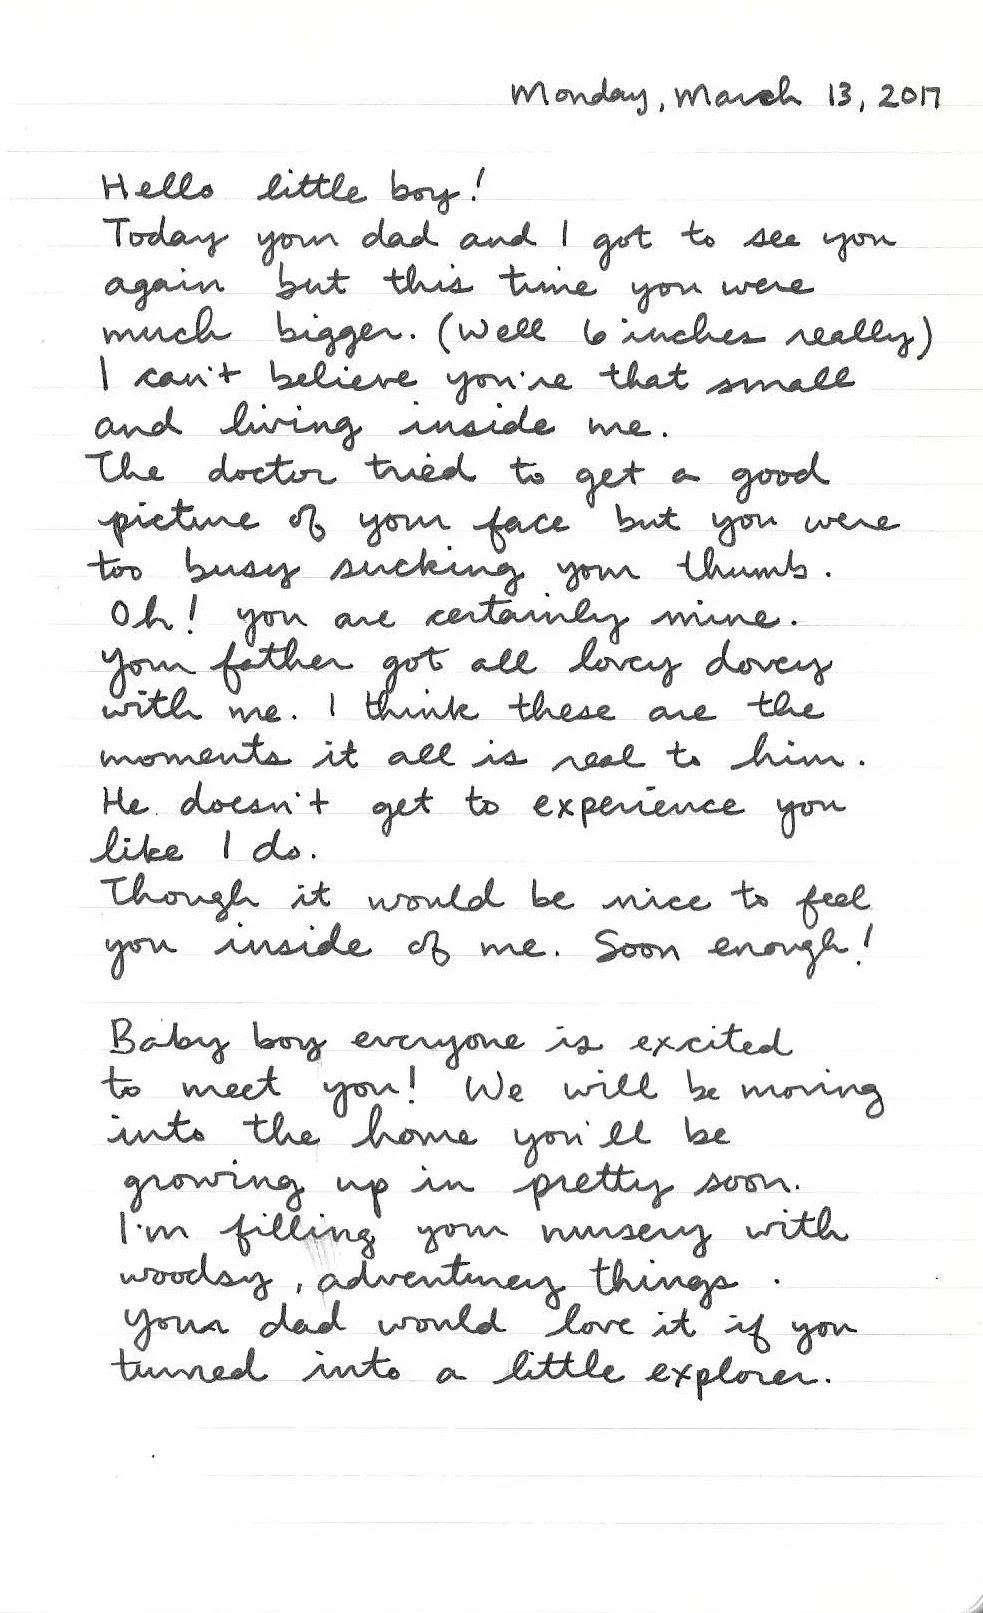 Monday, March 13, 2017
Hello little boy!
Today your dad and I got to see you
again but this time you were
much bigger. (Well 6 inches really)
I can't believe you're that small
and living inside me.
The doctor tried to get a good
picture of your face but you were
too busy sucking your thumb.
Oh! you are certainly mine.
Your father got all lovey dovey
with me. I think these are the
moments it all is real to him.
He doesn't get to experience you
like I do.
Though it would be nice to feel
you inside of me. Soon enough!
Baby boy everyone is excited
to meet you! We will be moving
into the home you'll be
growing up in pretty soon.
I'm filling your nursery with
woodsy, adventurey things.
Your dad would love it if you
turned into a little explorer.